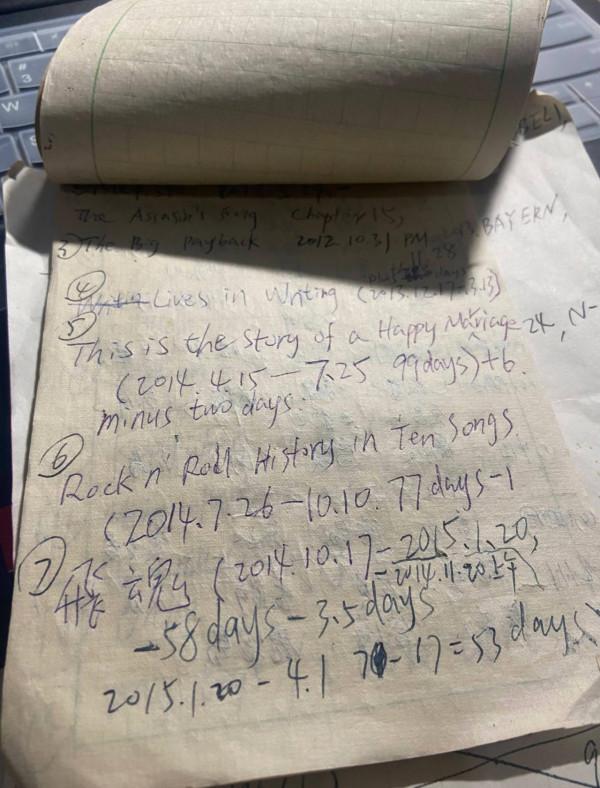 The Assassin's Song Chapter 15,
③ The Big Payback 2012.10.31 PM BAYERN,
28
④ Lives in Writing (2013.12.17-3.13)
⑤ This is the story of a Happy Marriage 24, N-
(2014.4.15 - 7.25 99days)+6.
minus two days.
⑥ Rock n' Roll History in Ten Songs.
(2014.7.26-10.10. 77days-1
⑦ 魂 (2014.10.17-2015.1.20,
-2014.11.20上午)
-58 days - 3.5 days
2015.1.20 - 4.1 70-17=53 days)